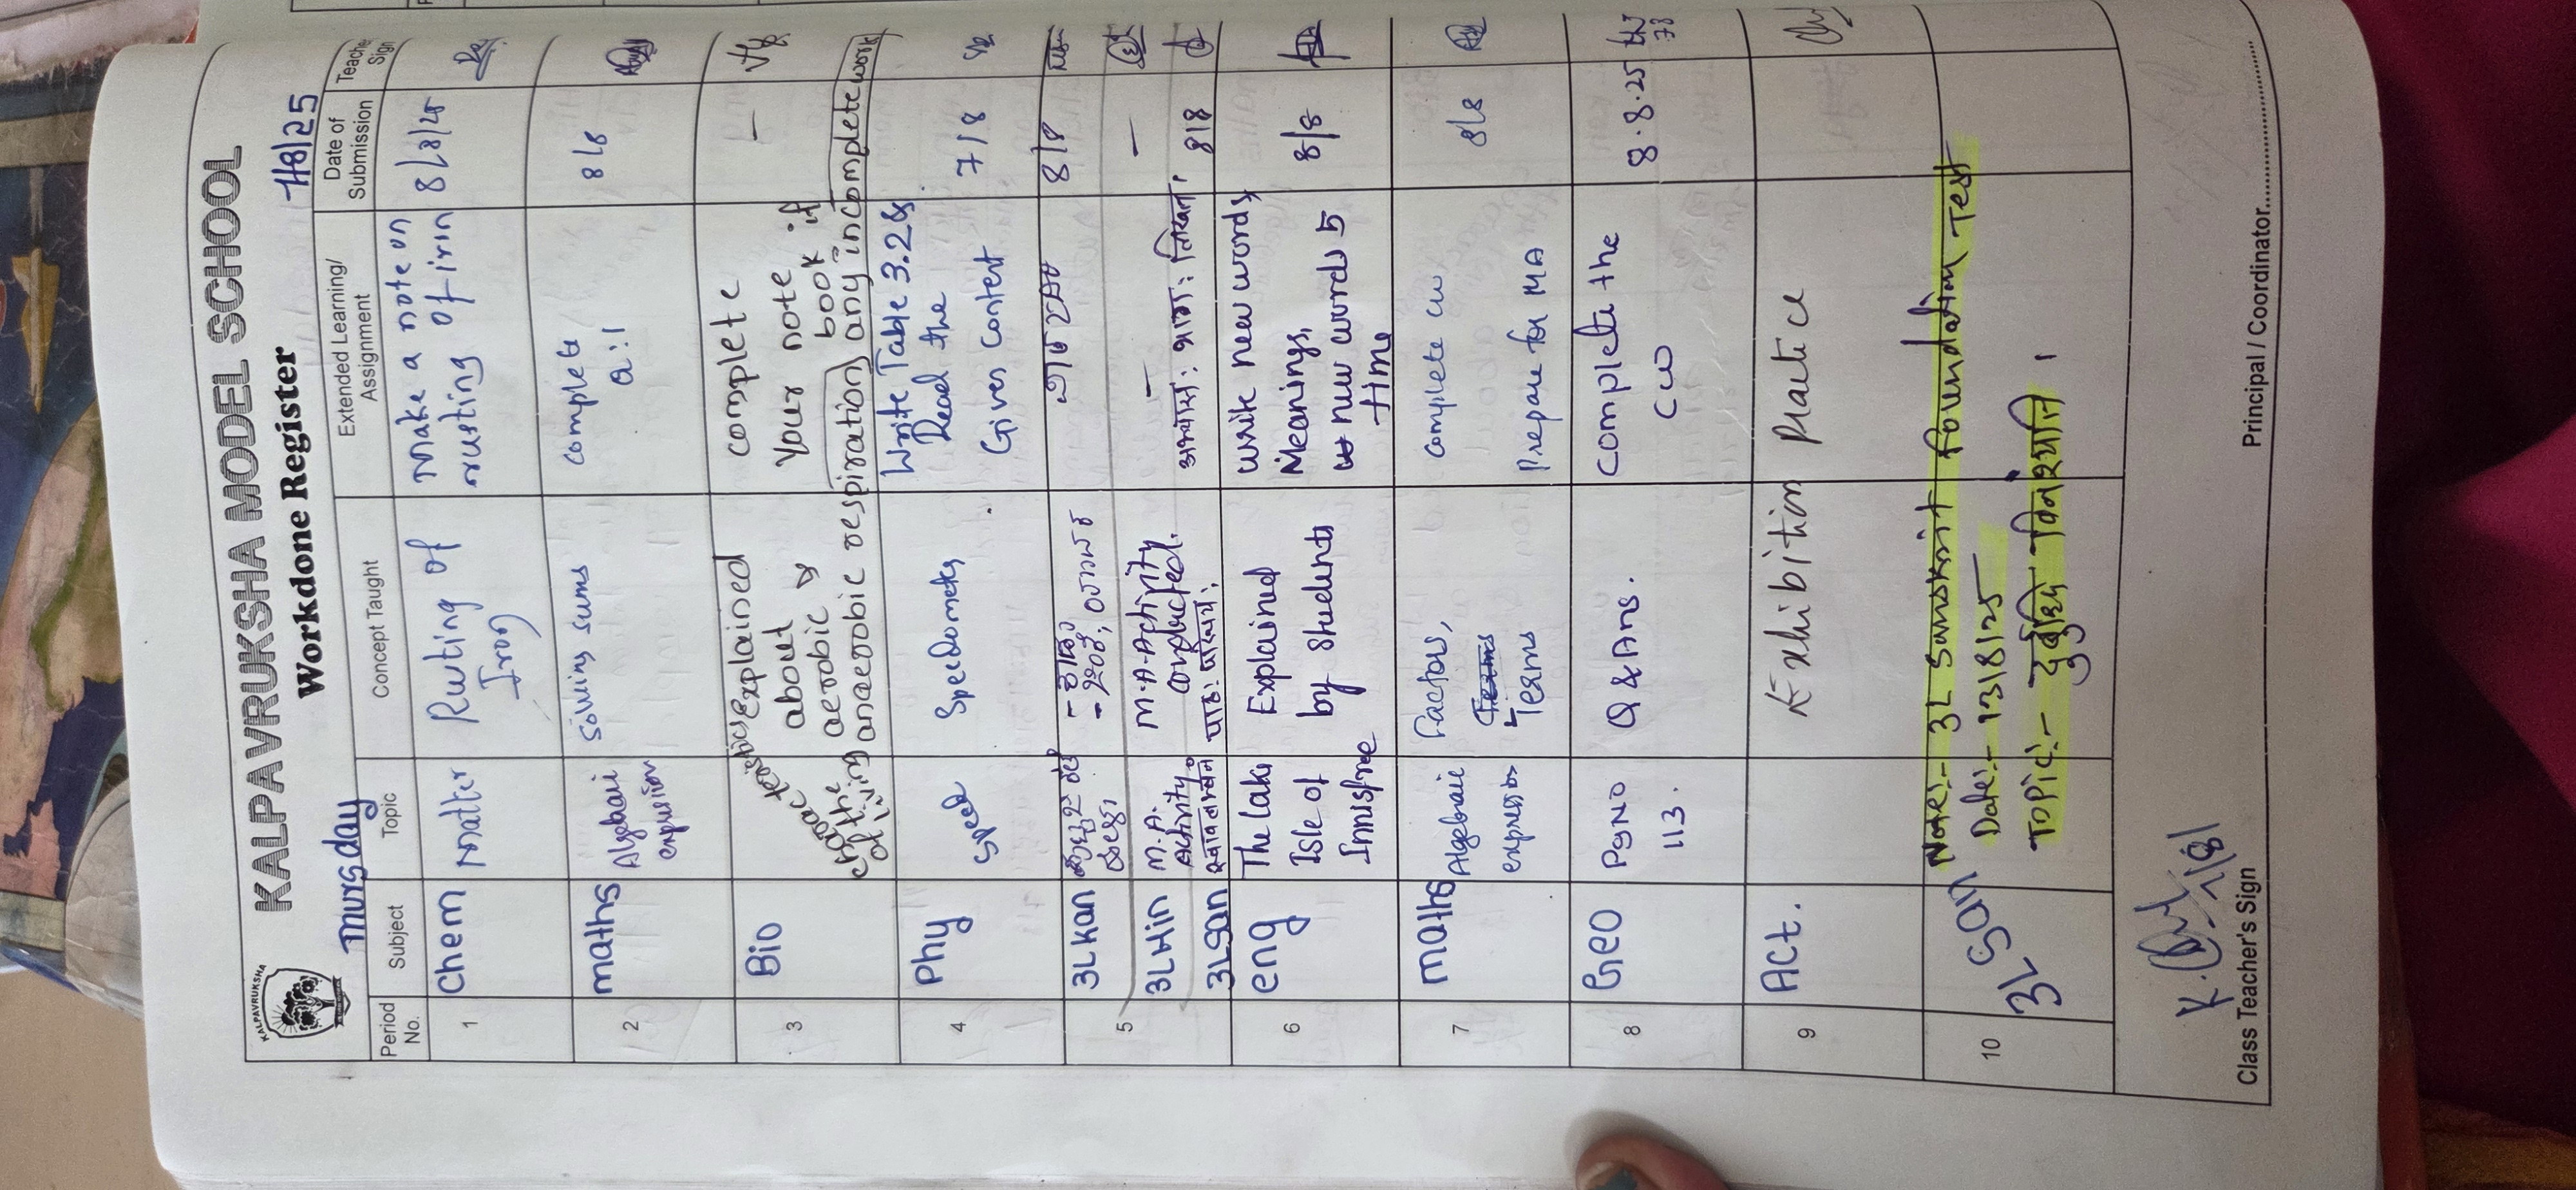 KALPAVRUKSHA
KALPAVRUKSHA MODEL SCHOOL
Workdone Register
Thursday
7/8/25
Period No.
Subject
Topic
Concept Taught
Extended Learning/ Assignment
Date of Submission
Teacher Sign
1
Chem
matter
Rusting of
Iron
make a note on
rusting of irin
8/8/25
2
maths
Algebraic
expression
Solving sums
complete
8/8
3
Bio
charac teristics
of the
of living
Explained
about
aerobic &
anaerobic respiration
complete
your note
book if
any incomplete work
–
4
Phy
Speed
Speedometer
Write Table 3.2 &
Read the
Given content
7/8
5
3L Kan
8/8
3L Hin
M.A.
activity.
M.A. Activity
conducted.
–
–
3L San
8/8
6
eng
The Lake
Isle of
Innisfree
Explained
by students
write new words,
Meanings,
new words 5
time
8/8
7
maths
Algebraic
expression
Factors,
Terms
complete cw
Prepare for MA
8/8
8
Geo
Pg NO
113.
Q & Ans.
complete the
cw
8.8.25
9
Act.
Exhibition Practice
10
3L San
Note:- 3L Sanskrit Foundation Test
Date:- 13/8/25
Topic:- दुर्बुद्धिः विनश्यति ।
Class Teacher's Sign
Principal / Coordinator